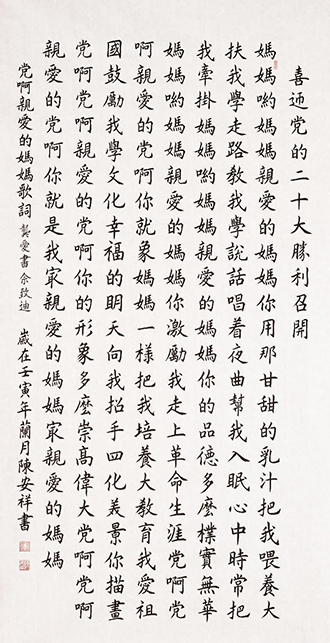 喜迎党的二十大勝利召開
媽媽喲媽媽親愛的媽媽你用那甘甜的乳汁把我喂養大
扶我學走路教我學說話唱着夜曲幫我入眠心中時常把
我牽掛媽媽喲媽媽親愛的媽媽你的品德多麼樸實無華
媽媽喲媽媽親愛的媽媽你激勵我走上革命生涯党啊党
啊親愛的党啊你就象媽媽一樣把我培養大教育我愛祖
國鼓勵我學文化幸福的明天向我招手四化美景你描畫
党啊党啊親愛的党啊你的形象多麼崇高偉大党啊党啊
親愛的党啊你就是我㝡親愛的媽媽㝡親愛的媽媽
党啊親愛的媽媽歌詞 龔愛書 佘致迪 歲在壬寅年蘭月陳安祥書